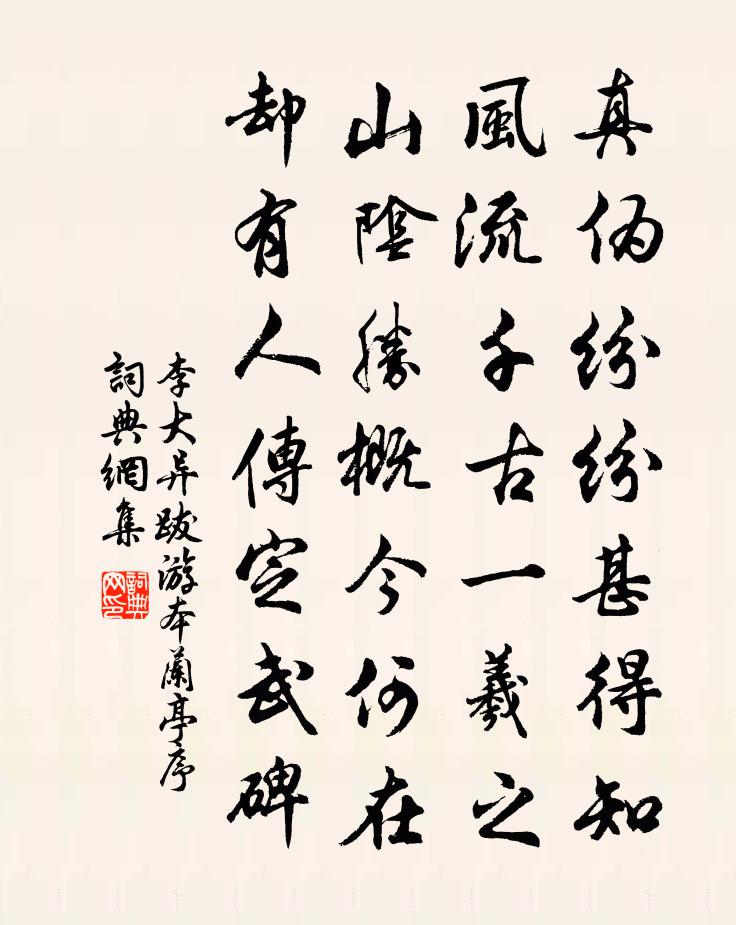 真伪紛紛甚得知
風流千古一羲之
山陰勝概今何在
却有人傳定武碑
李大异跋游本蘭亭序
詞典網集
詞典網印